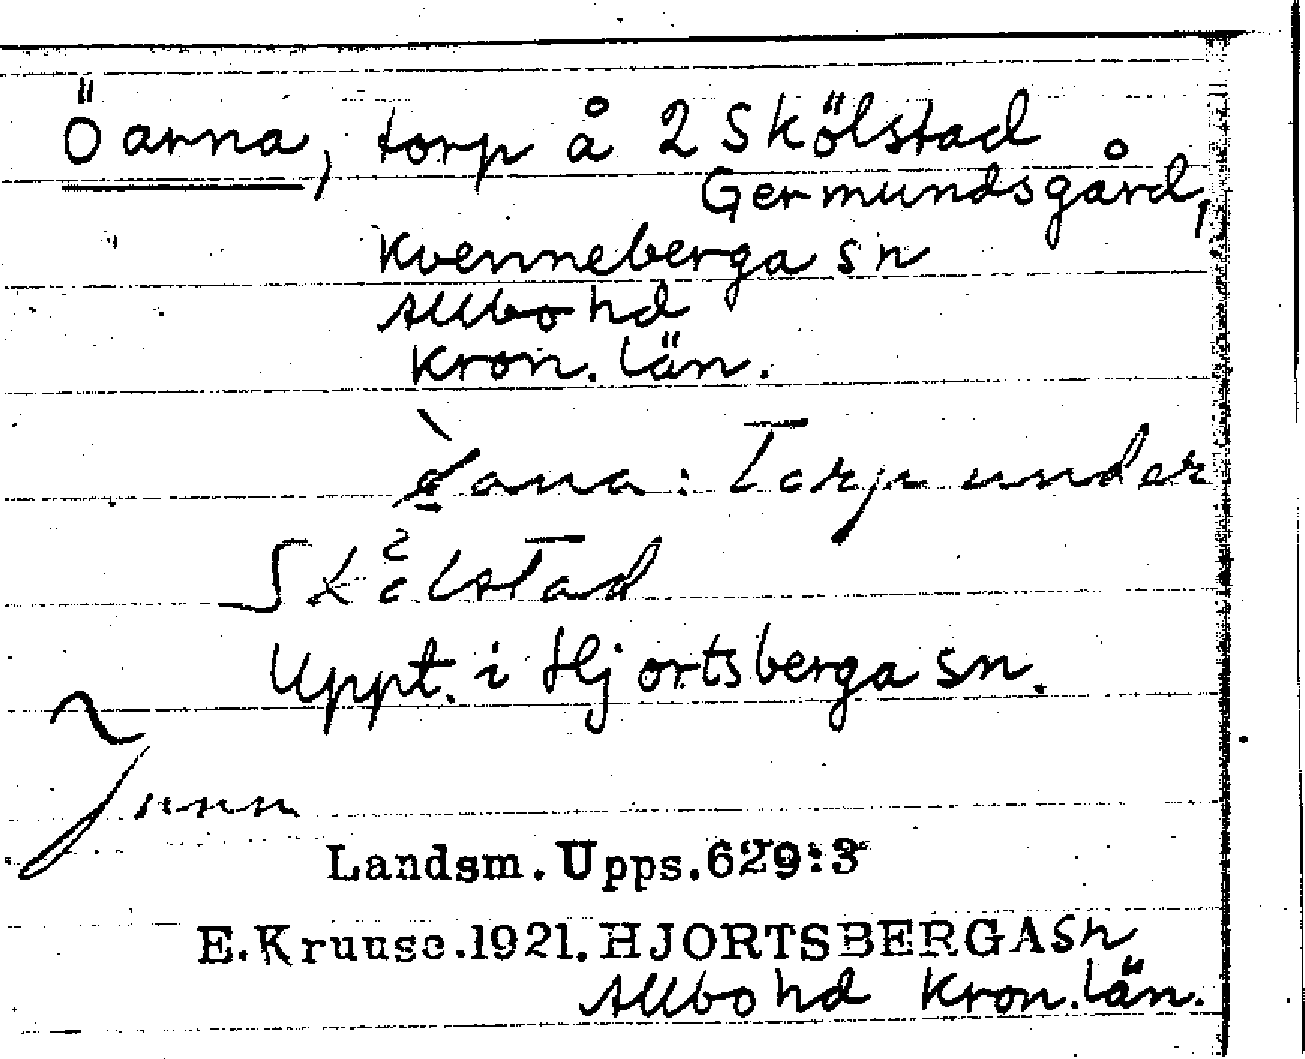 Öarna, torp å 2 Skölstad
Germundsgård,
Kvenneberga sn
Allbo hd
Kron. län.
: Torp under
Skölstad
Uppt. i Hjortsberga sn.
Landsm. Upps. 629:3
E. Kruuse. 1921. HJORTSBERGA sn
Allbo hd Kron. län.